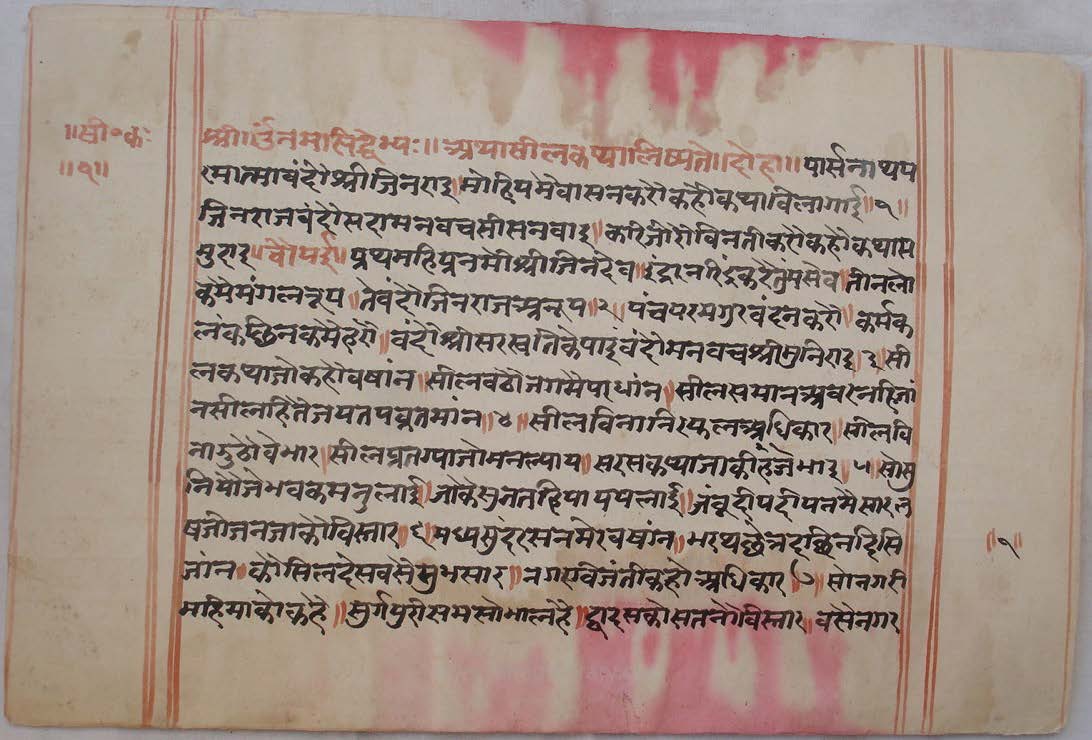 ॥सी॰कः
॥१॥
श्री॥ॐनमःसिद्धेभ्यः॥अथसीलकथालिष्यते॥दोहा॥पार्सनाथप
रमात्मावंदौश्रीजिनराइ॥मोहिपमेवासनकरौकहौकथाविलागाई॥१॥
जिनराजवंदौसदामनवचसीसनवाइ॥करिजोरोविनतीकरौकहौकथास
मुदाइ॥चौपई॥प्रथमहिप्रनमौश्रीजिनदेव॥इंद्रनरिंद्रकरेतुमसेव॥तीनलो
कमैमंगलरूप॥तेवंदौजिनराजअनूप॥२॥पंचपरमगुरवंदनकरौ॥कर्मक
लंकछिनकमेहरौ॥वंदौश्रीसरस्वतिकेपाइ॥वंदौमनवचश्रीमुनिराइ॥३॥सी
लकथाजोकहौवषांन॥सीलवढौजगमैपरधांन॥सीलसमानअवरनहिजां
नसीलहितेजपतपव्रतमांन॥४॥सीलविनानिरफलअधिकार॥सीलवि
ना
निषोजेभवकमनुलाई॥जाकेसुनतहिपापपलाई॥जंबूदीपदीपनमैसारल
षजोजनजाकौविस्तार॥६॥मध्यसुदरसनमेरवषांन॥भरथछेत्रदछिनदिसि
जांन॥कौसिलदेसवसैसुभसार॥नगरविजंतीकहौअधिकार॥७॥सोनगरी
महिमाकोकहै॥सुर्गपुरीसमसोभालहै॥द्वादसकोसतनौविस्तार॥वसेनगर
॥१